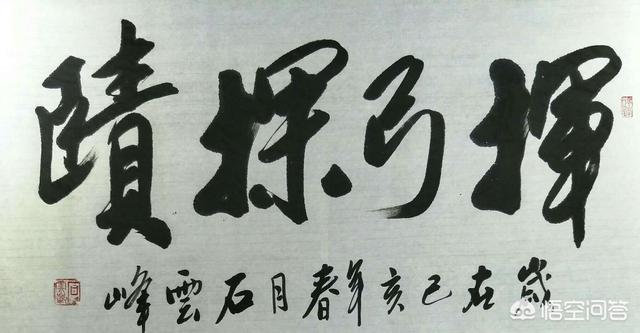 揮探賾
歲在己亥年春月石雲峰
悟空问答